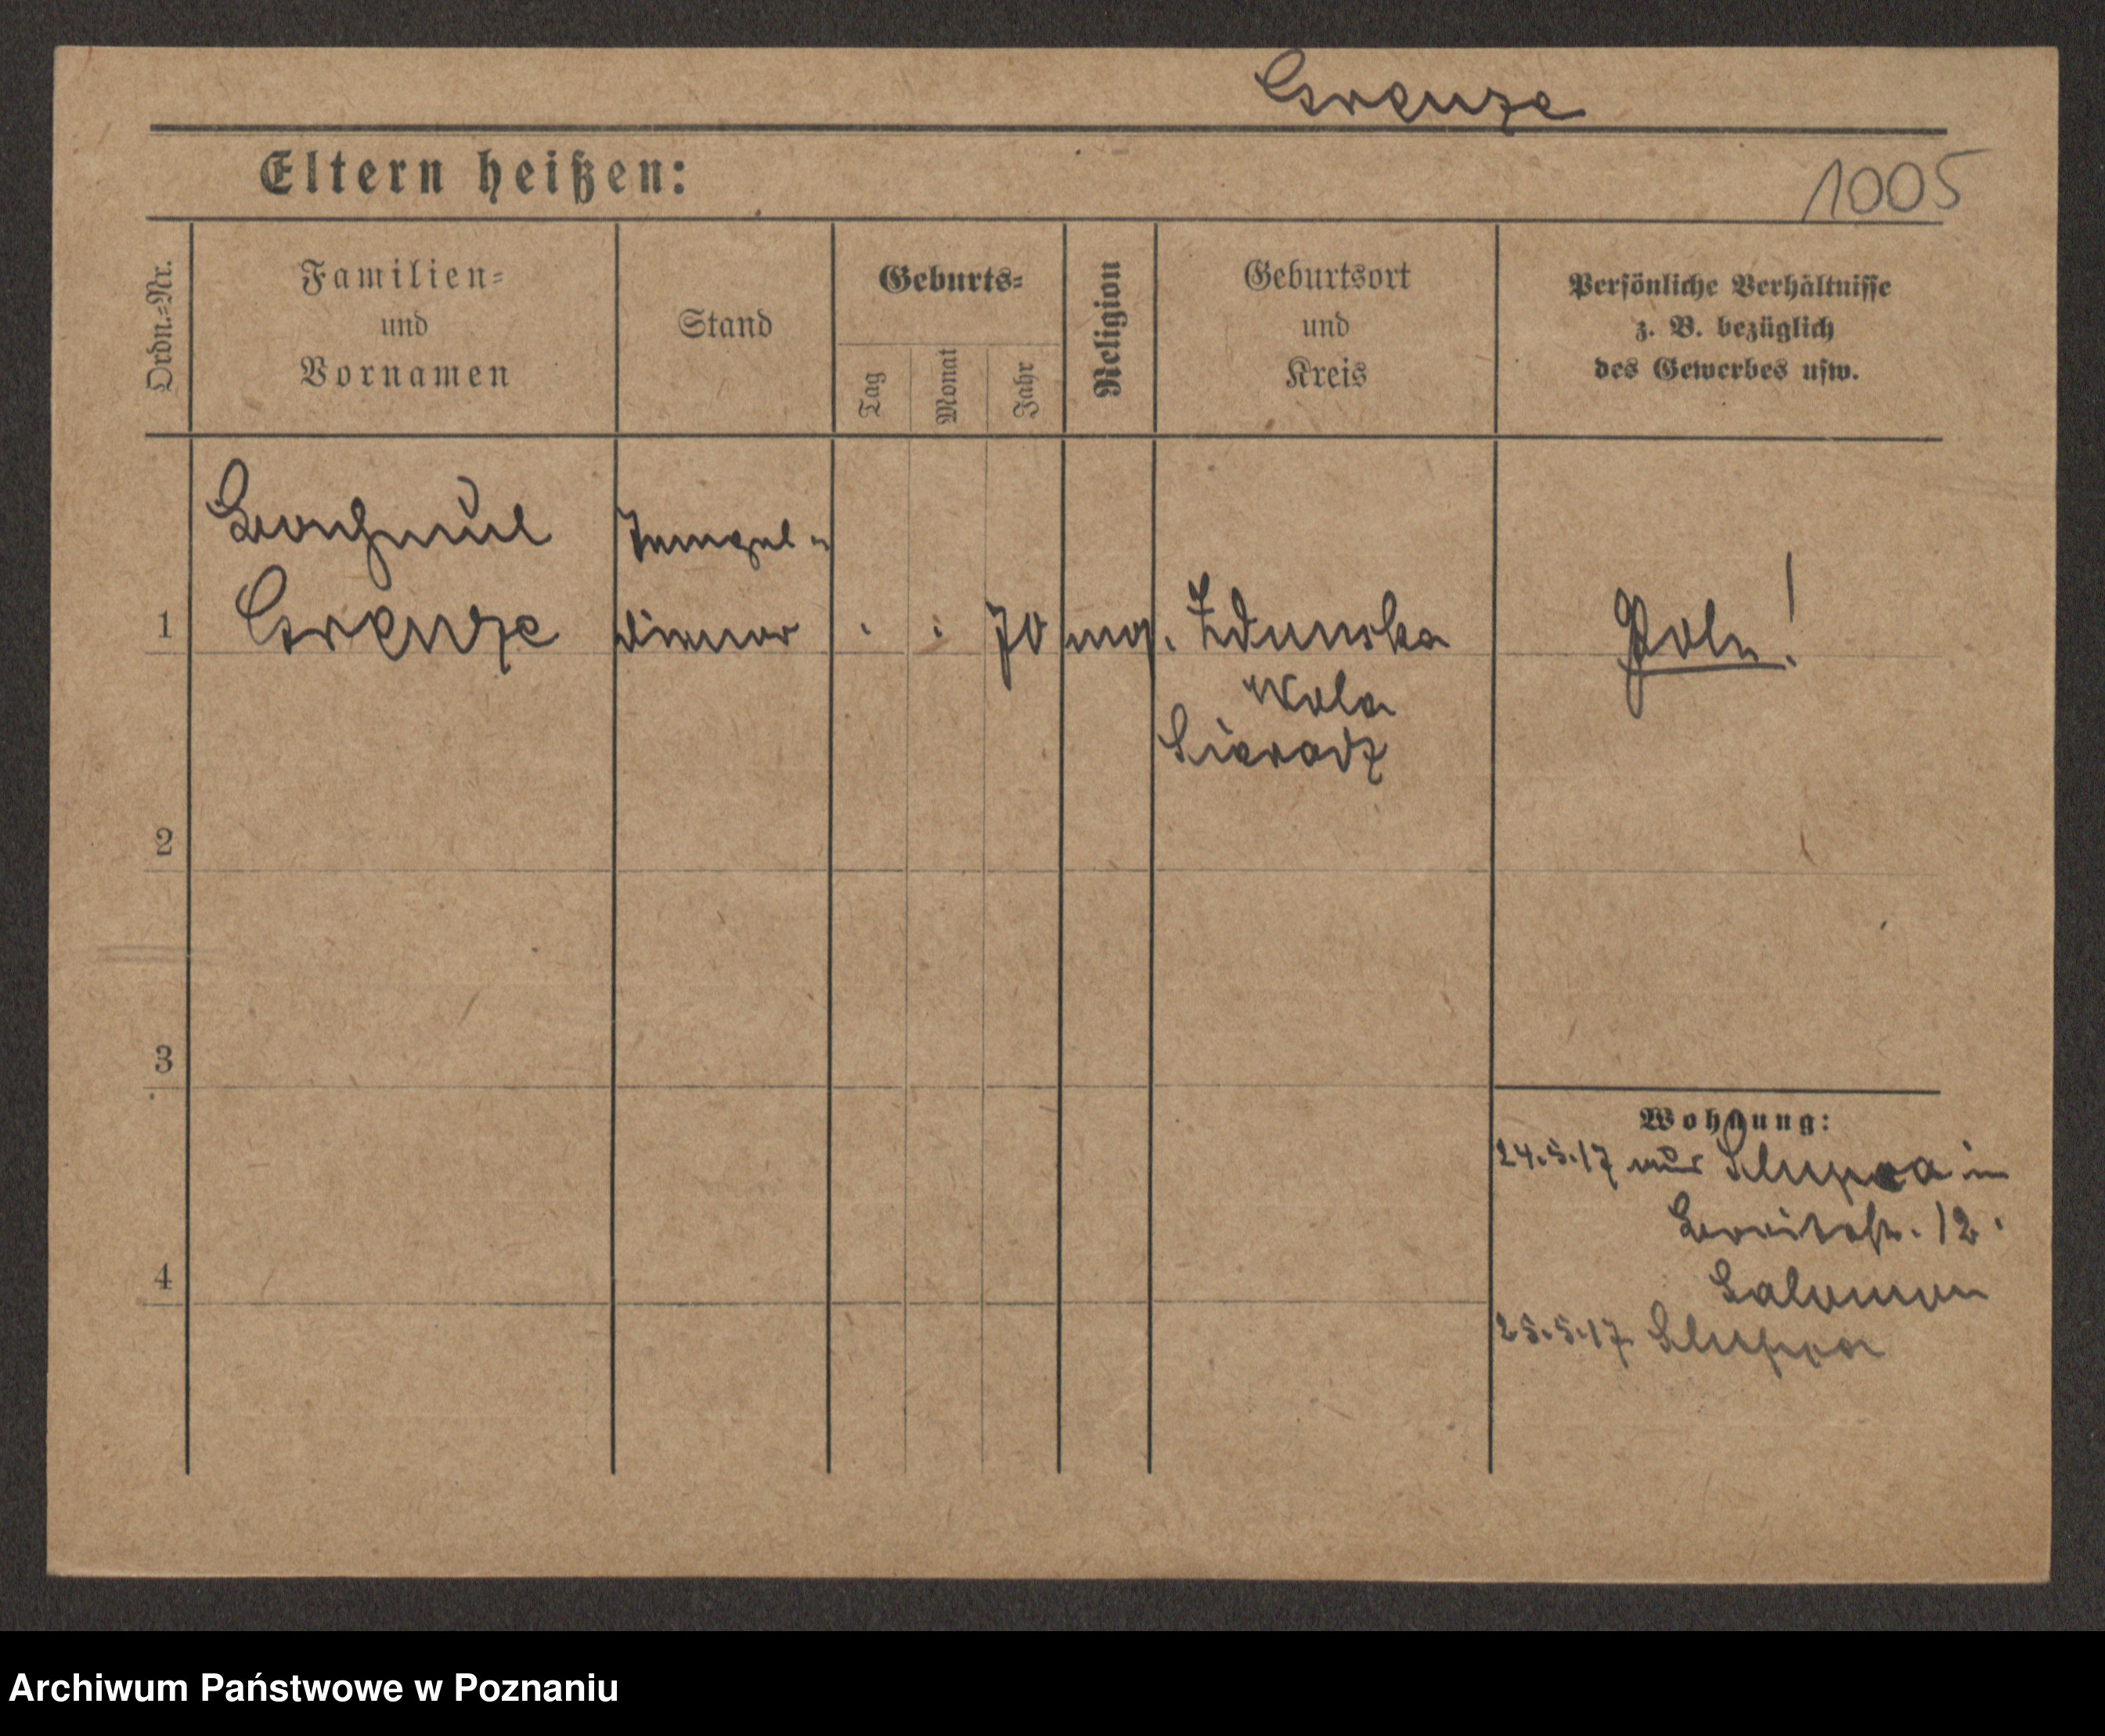 Grenze
Eltern heißen:
1005
Ordn.=Nr.
Familien=
und
Vornamen
Stand
Geburts=
Tag
Monat
Jahr
Religion
Geburtsort
und
Kreis
Persönliche Verhältnisse
z. B. bezüglich
des Gewerbes usw.
Tempel=
1
Grenze
diener
70
mos.
Zdunska
Pole!
Wola
Sieradz
2
3
Wohnung:
24.5.17 aus Slupca in
12.
4
Salomon
25.5.17 Slupca
Archiwum Państwowe w Poznaniu